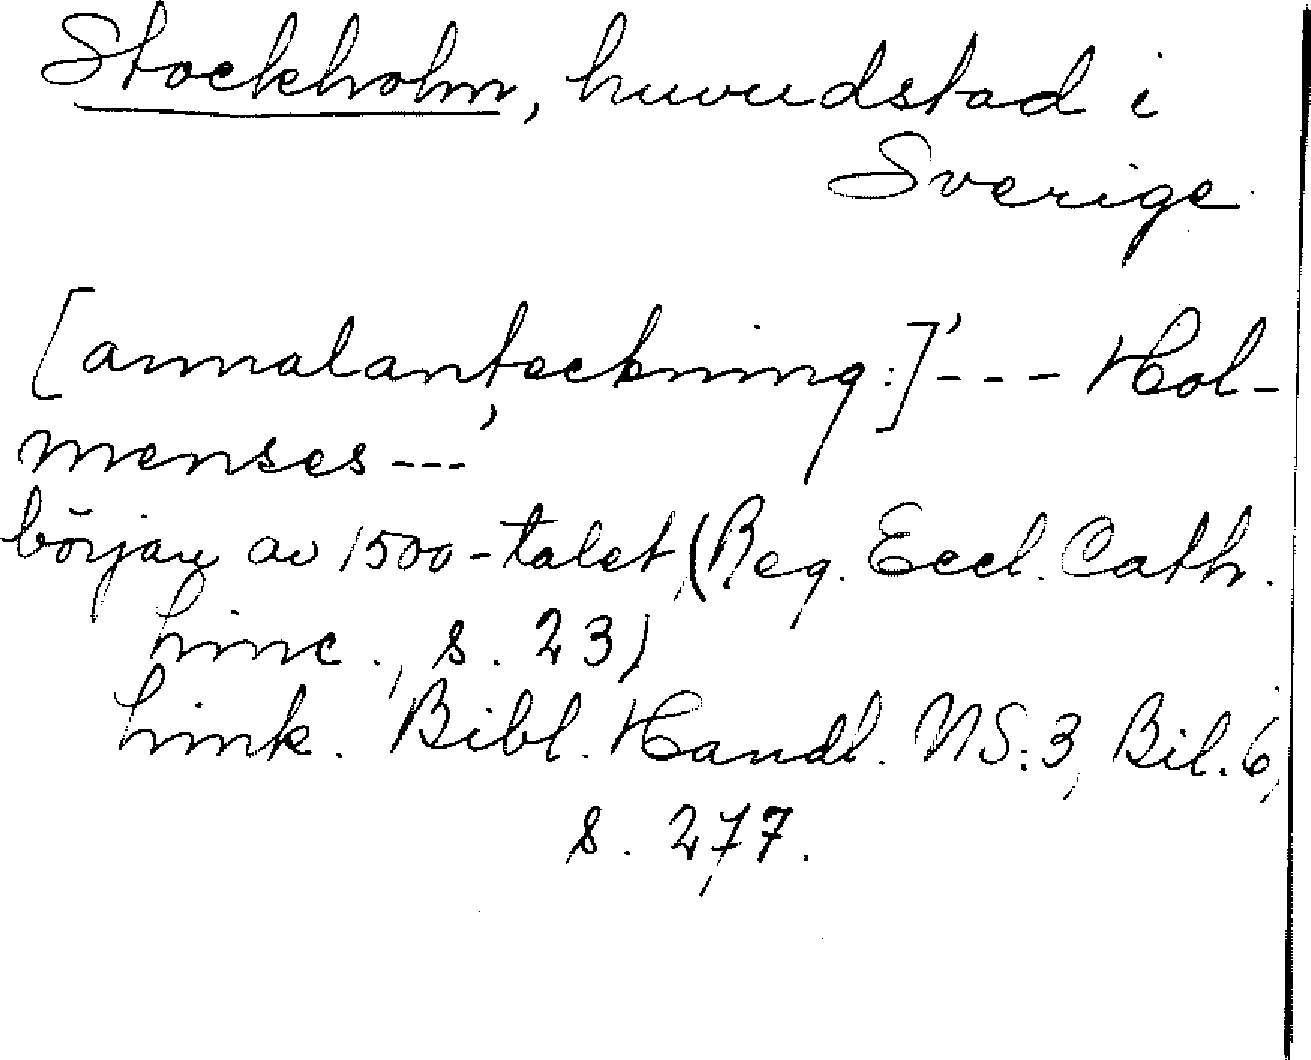 Stockholm, huvudstad i
Sverige
[annalanteckning:]' --- Hol-
menses ---'
början av 1500-talet, (Reg. Eccl. Cath.
Linc., s. 23)
Link. Bibl. Handl. NS:3, Bil. 6,
s. 277.